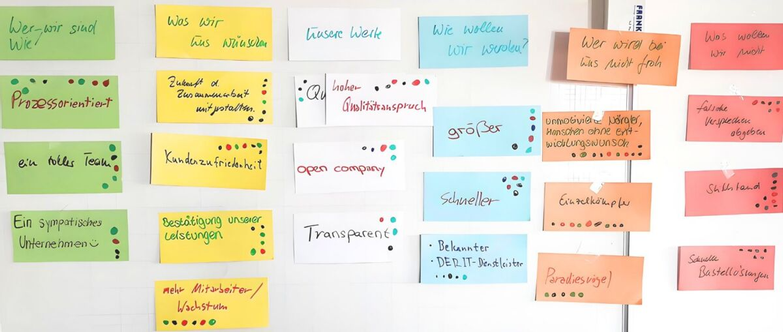 Wer wir sind
Wie
Prozessorientiert
ein tolles Team
Ein sympatisches
Unternehmen
Was wir
uns wünschen
Zukunft d.
Zusammenarbeit
mitgestalten
Kundenzufriedenheit
Bestätigung unserer
Leistungen
mehr Mitarbeiter/
Wachstum
Unsere Werte
Qu
hoher
Qualitätsanspruch
open company
Transparent
Wie wollen
wir werden?
größer
Schneller
• Bekannter
• DER IT-Dienstleister
Wer wird bei
uns nicht froh
unmotivierte Nörgler,
Menschen ohne Ent-
wicklungswunsch
Einzelkämpfer
Paradiesvögel
FRANK
Was wollen
wir nicht
falsche
Versprechen
abgeben
Stillstand
Schnelle
Bastellösungen